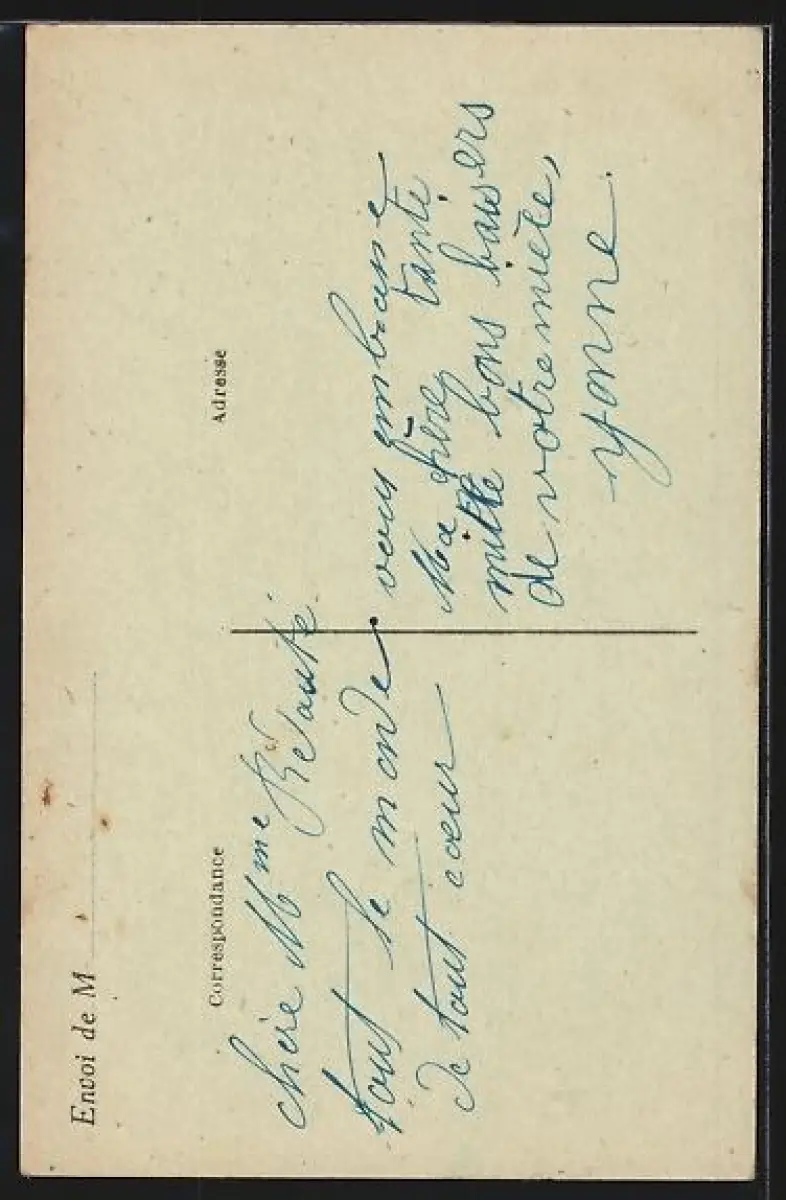 Envoi de M
Correspondance
Adresse
chère Mme
tout le monde vous embrasse
de tout cœur
Ma chère tante
mille bons baisers
de votre nièce,
Yvonne.